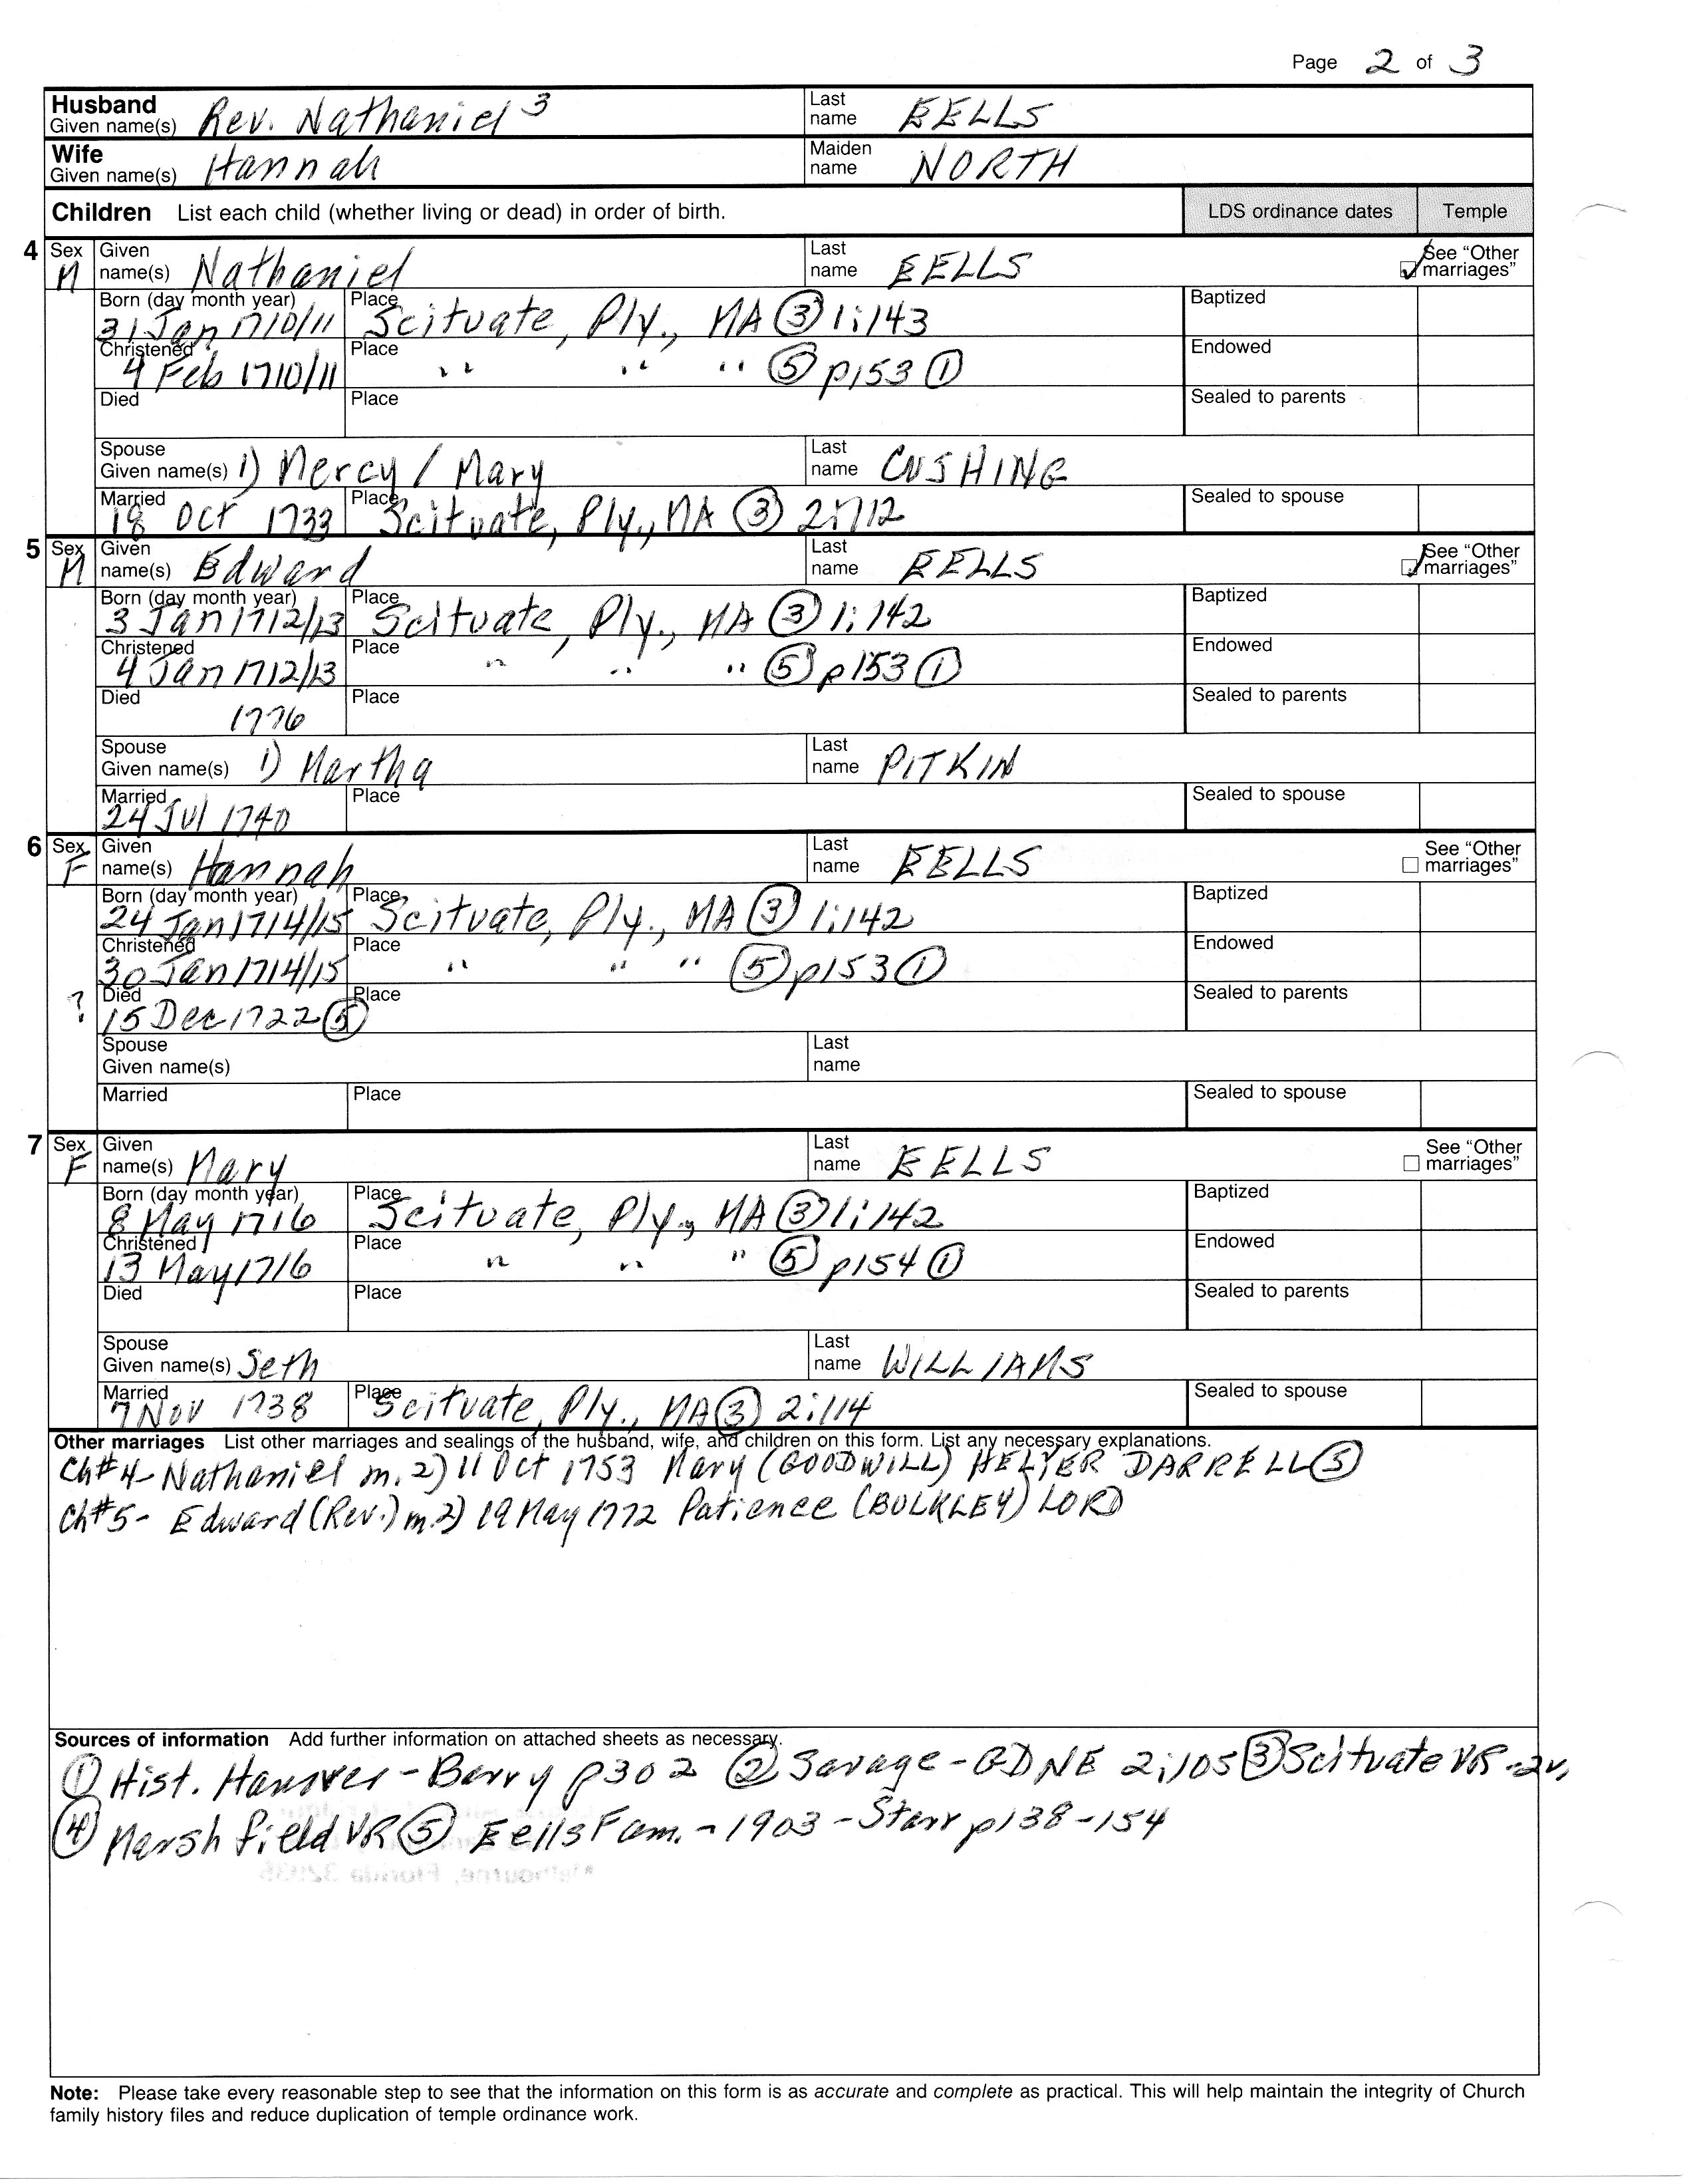 Page 2 of 3
Husband Given name(s) Rev. Nathaniel 3 Last name EELLS
Wife Given name(s) Hannah Maiden name NORTH
Children List each child (whether living or dead) in order of birth. LDS ordinance dates Temple
4 Sex M Given name(s) Nathaniel Last name EELLS See "Other marriages"
Born (day month year) 31 Jan 1710/11 Place Scituate, Ply., MA ③ 1:143 Baptized
Christened 4 Feb 1710/11 Place " " " ⑤ p153 ① Endowed
Died Place Sealed to parents
Spouse Given name(s) 1) Mercy / Mary Last name CUSHING
Married 18 Oct 1733 Place Scituate, Ply., MA ③ 2:112 Sealed to spouse
5 Sex M Given name(s) Edward Last name EELLS See "Other marriages"
Born (day month year) 3 Jan 1712/13 Place Scituate, Ply., MA ③ 1:142 Baptized
Christened 4 Jan 1712/13 Place " " " ⑤ p153 ① Endowed
Died 1776 Place Sealed to parents
Spouse Given name(s) 1) Martha Last name PITKIN
Married 24 Jul 1740 Place Sealed to spouse
6 Sex F Given name(s) Hannah Last name EELLS See "Other marriages"
Born (day month year) 24 Jan 1714/15 Place Scituate, Ply., MA ③ 1:142 Baptized
Christened 30 Jan 1714/15 Place " " " ⑤ p153 ① Endowed
? Died 15 Dec 1722 ⑤ Place Sealed to parents
Spouse Given name(s) Last name
Married Place Sealed to spouse
7 Sex F Given name(s) Mary Last name EELLS See "Other marriages"
Born (day month year) 8 May 1716 Place Scituate, Ply., MA ③ 1:142 Baptized
Christened 13 May 1716 Place " " " ⑤ p154 ① Endowed
Died Place Sealed to parents
Spouse Given name(s) Seth Last name WILLIAMS
Married 7 Nov 1738 Place Scituate, Ply., MA ③ 2:114 Sealed to spouse
Other marriages List other marriages and sealings of the husband, wife, and children on this form. List any necessary explanations.
Ch#4- Nathaniel m. 2) 11 Oct 1753 Mary (GOODWILL) HELYER DARRELL ⑤
Ch#5- Edward (Rev.) m. 2) 19 May 1772 Patience (BULKLEY) LORD
Sources of information Add further information on attached sheets as necessary.
① Hist. Hanover - Barry p302 ② Savage - GDNE 2:105 ③ Scituate VR - 2v,
④ Marshfield VR ⑤ Eells Fam. - 1903 - Starr p138-154
Melbourne, Florida 32935
Note: Please take every reasonable step to see that the information on this form is as accurate and complete as practical. This will help maintain the integrity of Church
family history files and reduce duplication of temple ordinance work.